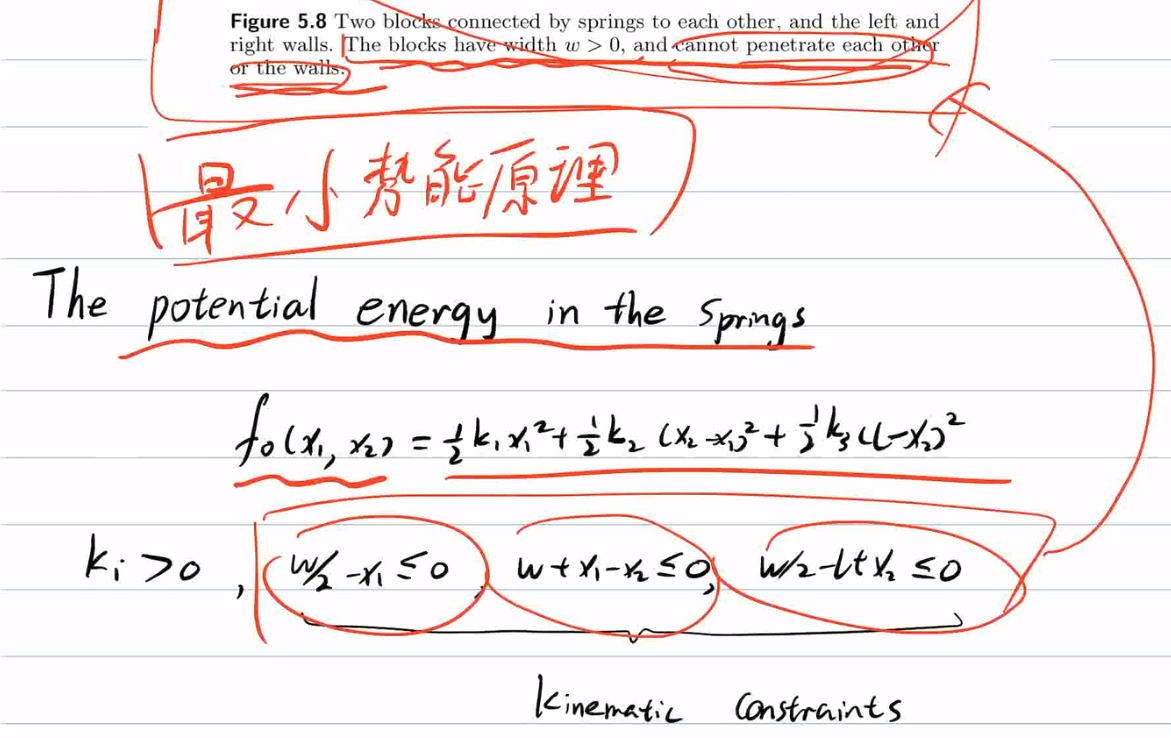 Figure 5.8 Two blocks connected by springs to each other, and the left and
right walls. The blocks have width w > 0, and cannot penetrate each other
or the walls.
最小势能原理
The potential energy in the springs
f₀(x₁, x₂) = ½k₁x₁² + ½k₂ (x₂-x₁)² + ½k₃(l-x₂)²
kᵢ >0 , w/2 -x₁ ≤ 0, w + x₁-x₂ ≤ 0, w/2-l+x₂ ≤ 0
kinematic constraints